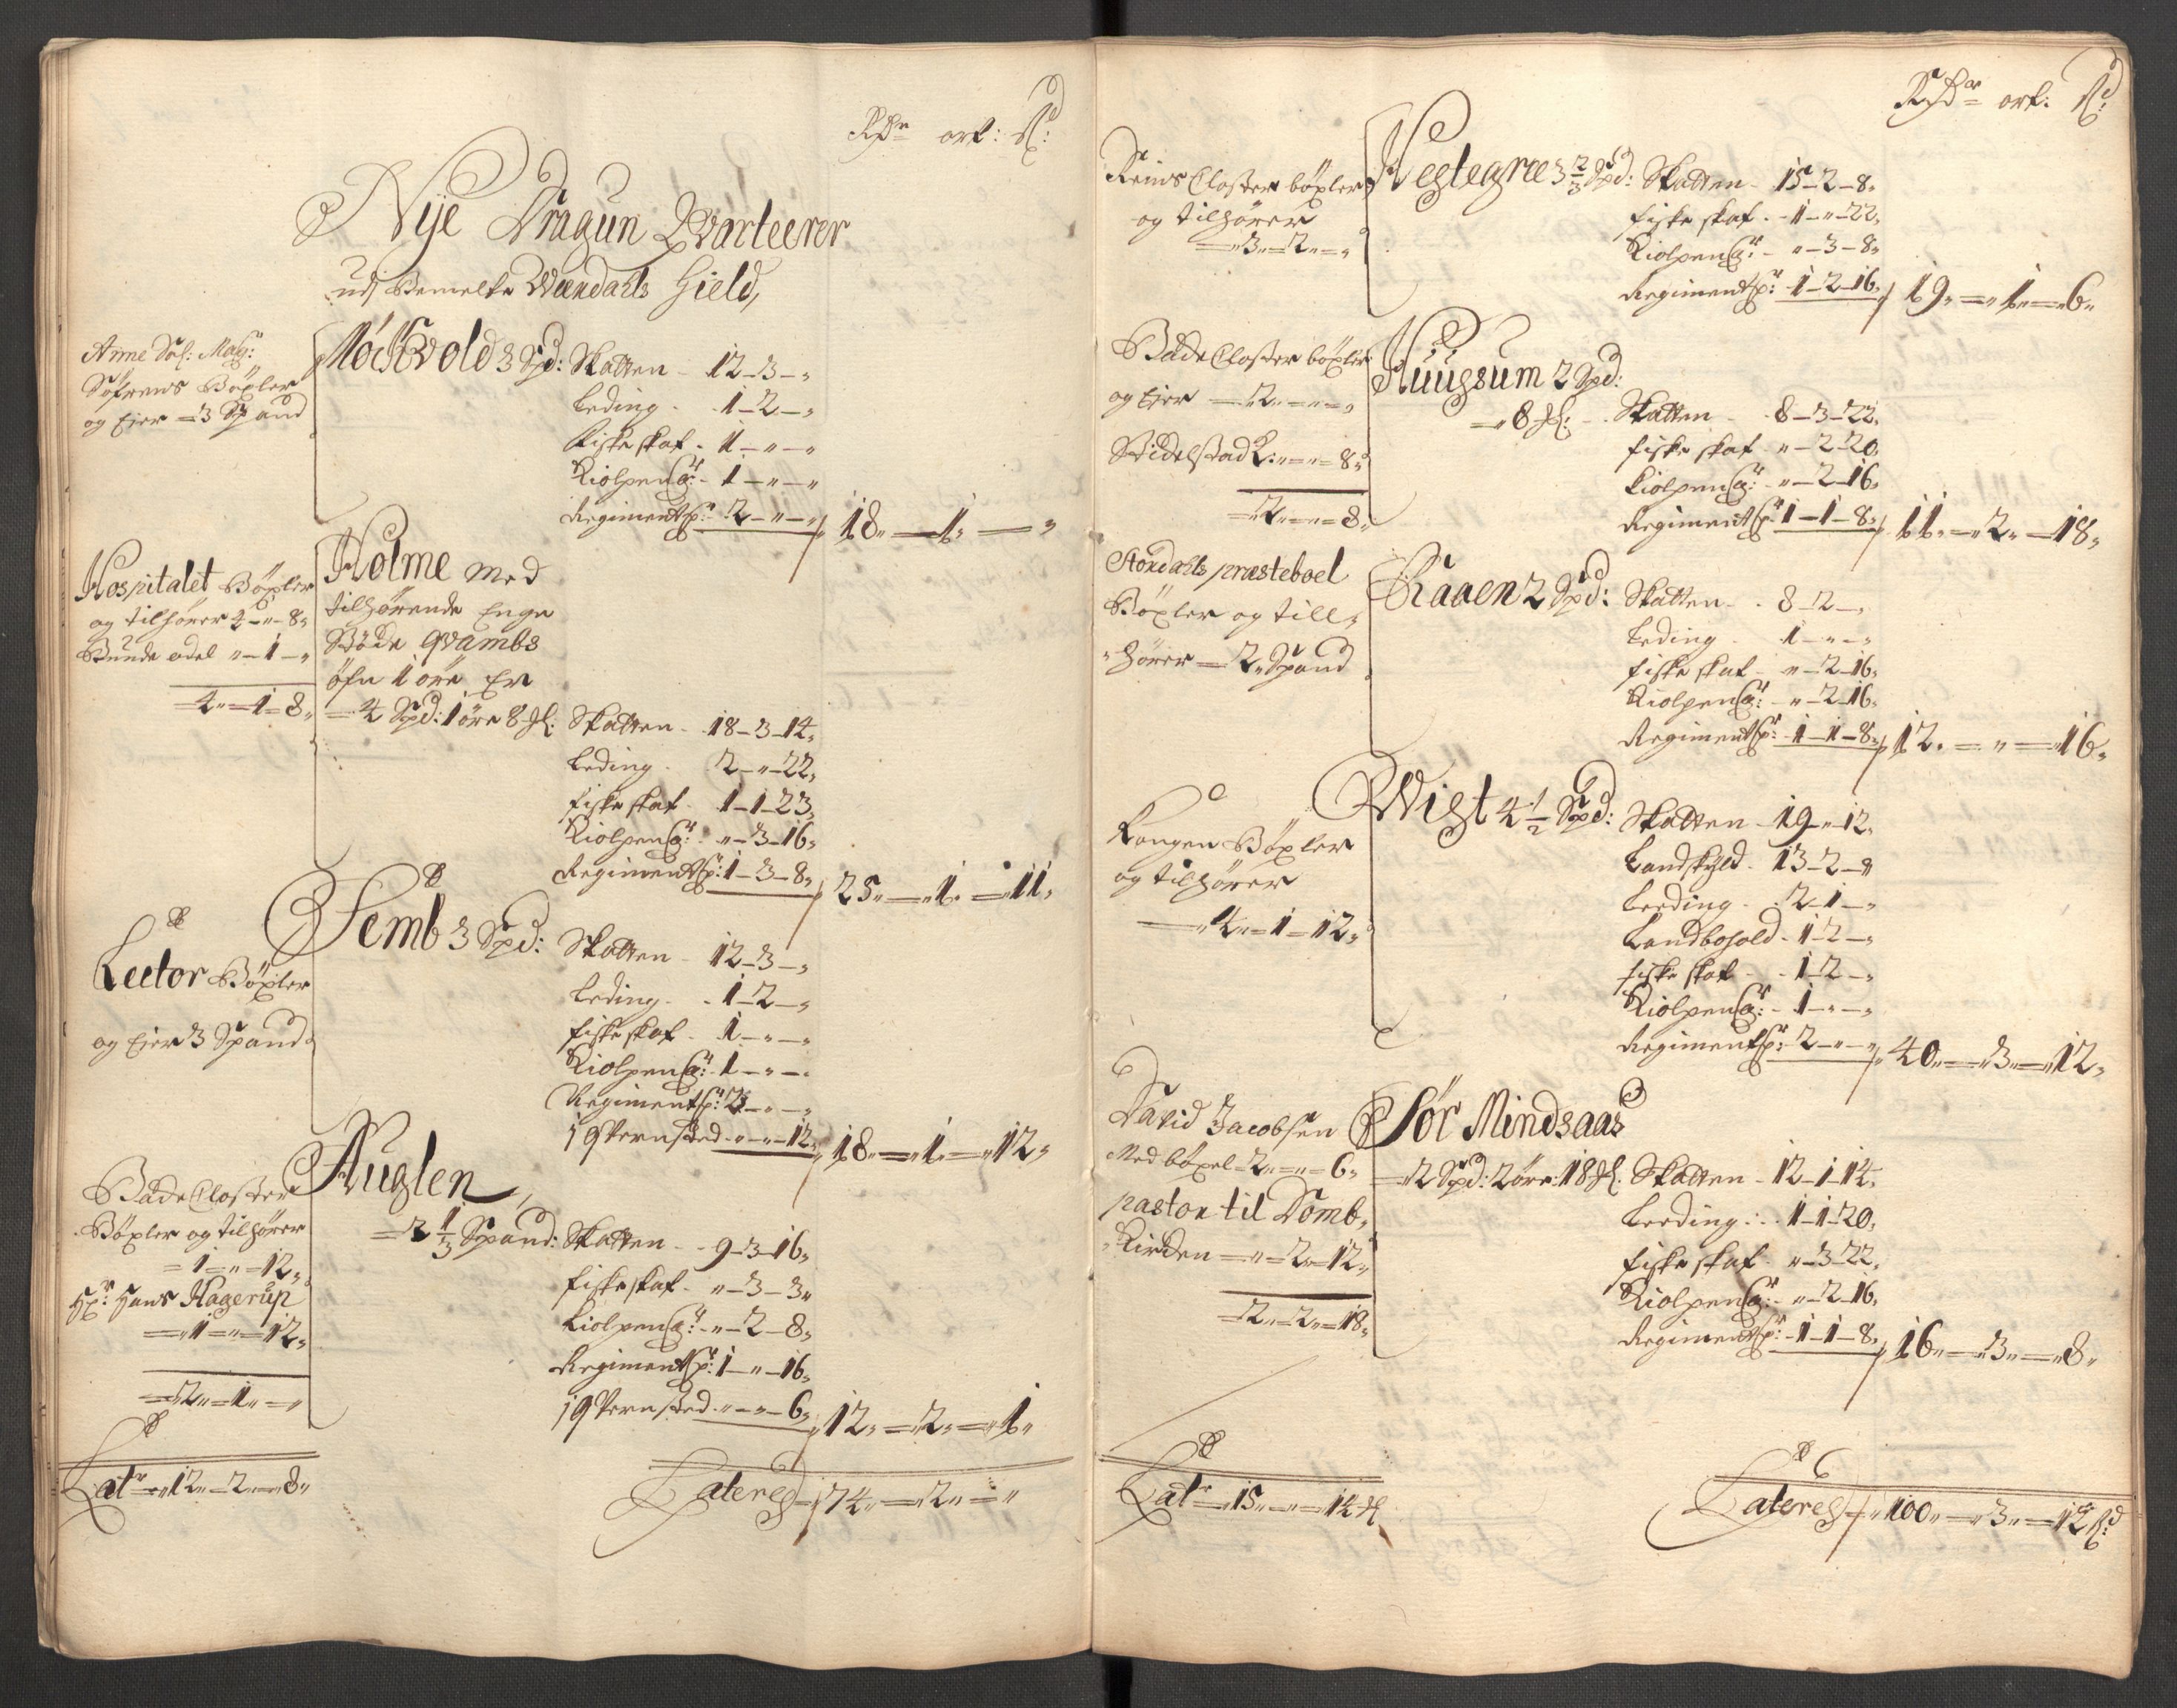 Rdr ort: ß:
Nije Dragun Qvarteerer
udj Bemelte Werdahls Gield,
Anne Sal: Mag:
Søfrens Bøxler
og Ejer = 3 Spand
Möchvold 3 Spd: Skatten - 12 - 3 - "
Leding - 1 - 2 - "
Fiske skat - 1 - " - "
Kiolpen - 1 - " - "
Regimentsp: 2 - " - " 18 " = 1 " = "
Hospitalet Bøxler
og tilhører 4 - " - 8 "
Bunde odel " - 1 - "
4 " = 1 = 8 "
Holme med
tilhørende Enge
Bøde qvambs
øfre 1 øre Er
= 4 Spd: 1 øre 8 Skatten - 18 - 3 - 14 "
Leding - 2 - " - 22 "
fiske skat - 1 - 1 - 23 "
Kiolpen " - 3 - 16 "
Regimentsp: 1 - 3 - 8 " 25 " = 1 " = 11 "
Lector Bøxler
og Ejer 3 Spand
Semb 3 Spd: Skatten - 12 - 3 - "
Leding - 1 - 2 - "
fiske skat - 1 - " - "
Kiolpen - 1 - " - "
Regimentsp: 2 - " - "
" - " - 12 " 18 " = 1 " = 12 "
Bade Closter
Bøxler og tilhører
= 1 = " = 12 "
Hr: Hans Hagerup
= 1 = " = 12 "
= 2 " = 1 " = "
Auglen
= 2 1/3 Spand: Skatten - 9 - 3 - 16 "
fiske skat - " - 3 - 3 "
Kiolpen - " - 2 - 8 "
Regimentsp: 1 - " - 16 "
" - " - 6 " 12 " = 2 " = 1 "
Latr = 12 " = 2 " = 8 "
Lateres = 74 " = 2 " = "
Rdr ort: ß:
Reins Closter bøxler
og tilhører
= 3 " = 2 " = "
Vestegree 3 2/3 Spd: Skatten - 15 - 2 - 8 "
fiske skat - 1 - " - 22 "
Kiolpen - " - 3 - 8 "
Regimentsp: 1 - 2 - 16 " 19 " = 1 " = 6 "
Bade Closter bøxler
og Ejer = 2 " = " = "
" = " = 8 "
= 2 " = " = 8 "
Huugsum 2 Spd:
= 8 Skatten - 8 - 3 - 22 "
fiske skat " - 2 - 20 "
Kiolpen " - 2 - 16 "
Regimentsp: 1 - 1 - 8 " 11 " = 2 " = 18 "
Størdahls præsteboel
Bøxler og till,
hører = 2 " Spand
Raaen 2 Spd: Skatten - 8 - 2 - "
Leding - 1 - " - "
fiske skat - " - 2 - 16 "
Kiolpen - " - 2 - 16 "
Regimentsp: 1 - 1 - 8 " 12 " = " = 16 "
Kongen Bøxler
og tilhører
= 4 " = 1 = 12 "
Wist 4 1/2 Spd: Skatten - 19 - " - 12 "
Landskyld - 13 - 2 - "
Leeding - 2 - 1 - "
Landbohold - 1 - 2 - "
fiske skat - 1 - 2 - "
Kiolpen - 1 - " - "
Regimentsp: 2 - " - " 40 " = 3 " = 12 "
David Jacobsen
Med bøxel = 2 " = " = 6 "
pastor til Domb,
Kircken = " = 2 " = 12 "
2 " = 2 " = 18 "
Sør Mindsaas
= 2 Spd: 2 øre: 18 Skatten - 12 - 1 - 14 "
Leeding - 1 - 1 - 20 "
fiske skat " - 3 - 22 "
Kiolpen - " - 2 - 16 "
Regimentsp: 1 - 1 - 8 " 16 " = 3 " = 8 "
Latr = 15 " = " = 14
Lateres = 100 " = 3 " = 12 ß: